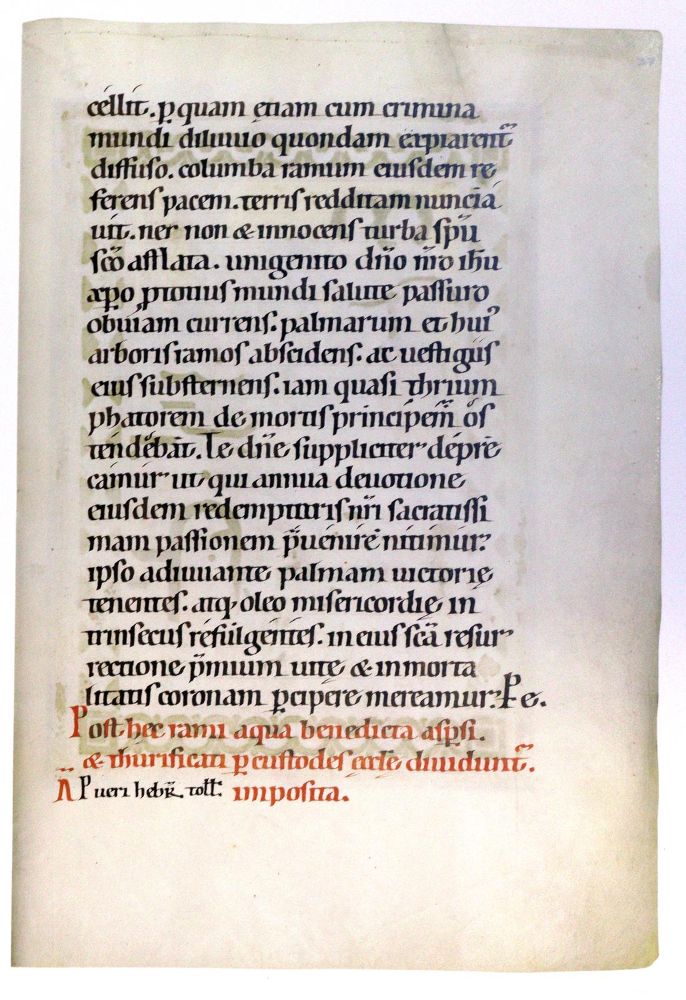 cellit. p̱ quam etiam cum crimina
mundi diluuio quondam expiarent᷑
diffuso. columba ramum eiusdem re
ferens pacem. terris redditam nunciá
uit. nec non & innocens turba sp̄u
sc̄o afflata. unigenito dn̄o nr̄o ih̄u
xp̄o p̱ totius mundi salute passuro
obuiam currens. palmarum et hui᷒
arboris ramos abscidens. ac uestigiis
eius substernens. iam quasi thrium
phatorem de mortis principem os
tendebat. Te dn̄e suppliciter depre
camur ut qui annua deuotione
eiusdem redemptoris nr̄i sacratissi
mam passionem p̄uenire nitimur.
ipso adiuuante palmam uictorię
tenentes. atq; oleo misericordię in
trinsecus refulgentes. in eius sc̄a resur
rectione p̄mium uitę & inmorta
litatis coronam p̱cipere mereamur. P̱ e.
Post hec rami aqua benedicta asp̱si.
& thurificati p̱ custodes eccl̄e diuidunt᷑.
A Pueri hebr̄. toll̄: imposita.